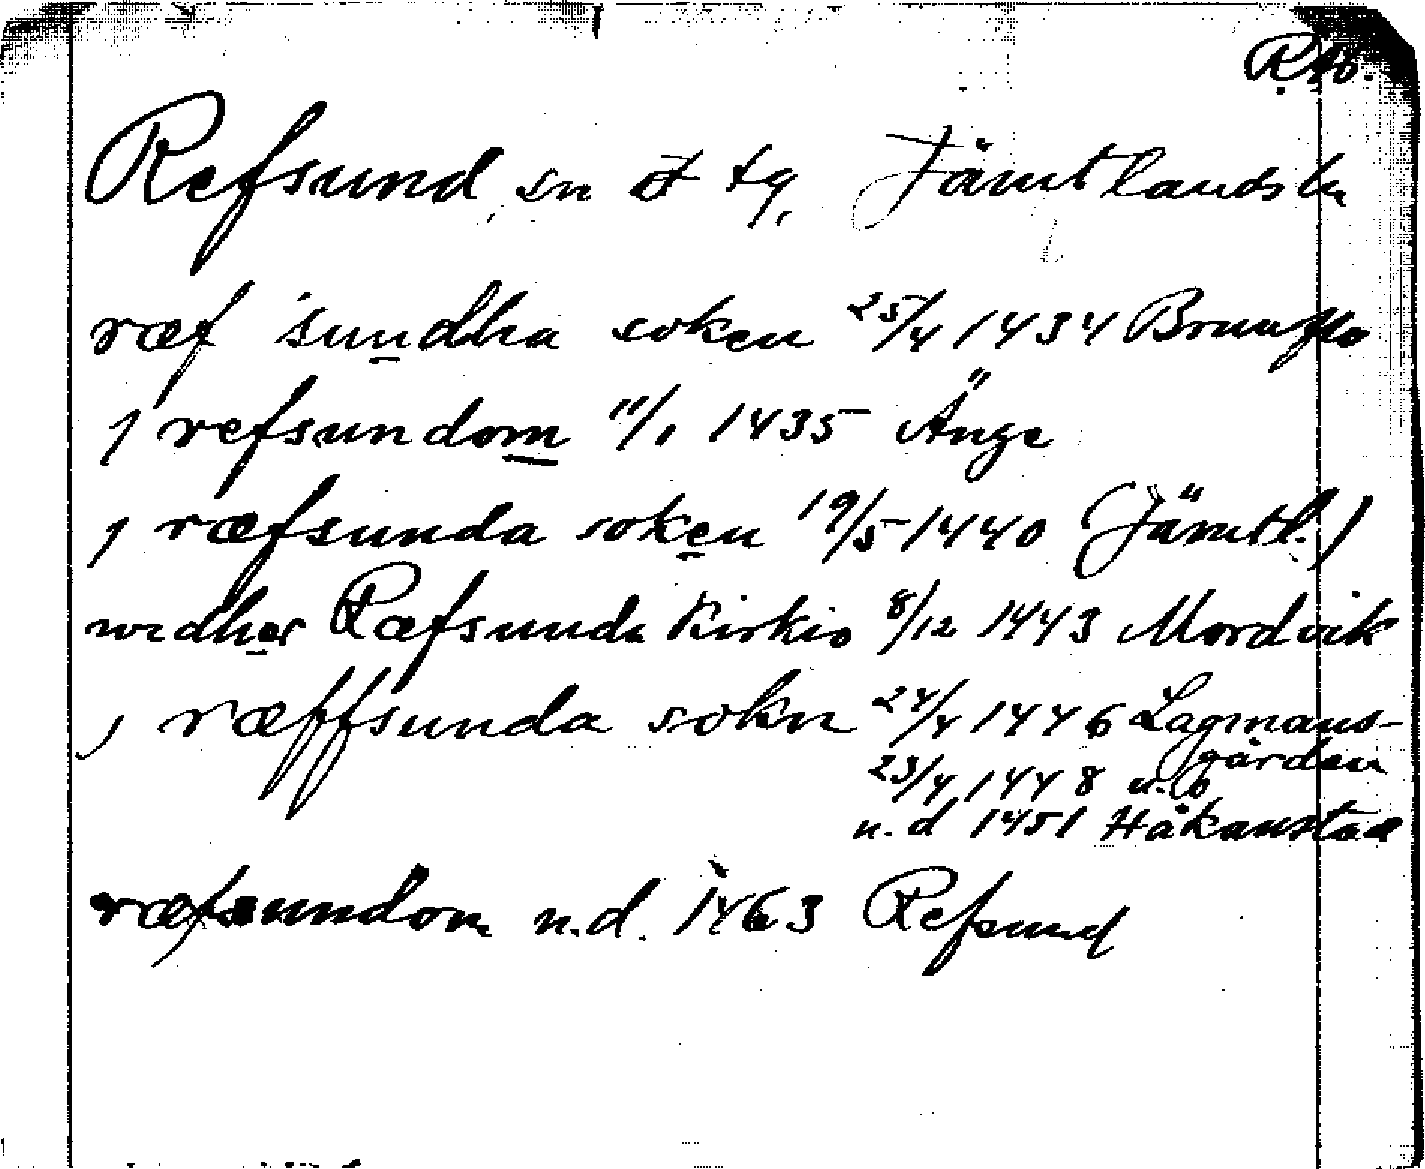 R.Ab.
Refsund, sn o tg, Jämtlands län
ræf sundha soken 25/4 1434 Brunflo
j refsundom 11/1 1435 Änge
j ræfsunda soken 19/5 1440 (Jämtl.)
widher Ræfsunda Kirkio 8/12 1443 Mordvik
j ræffsunda sokn 24/4 1446 Lagmans-
gården
23/4 1448 u.o
u.d 1451 Håkanstad
ræfsundom u.d. 1463 Refsund